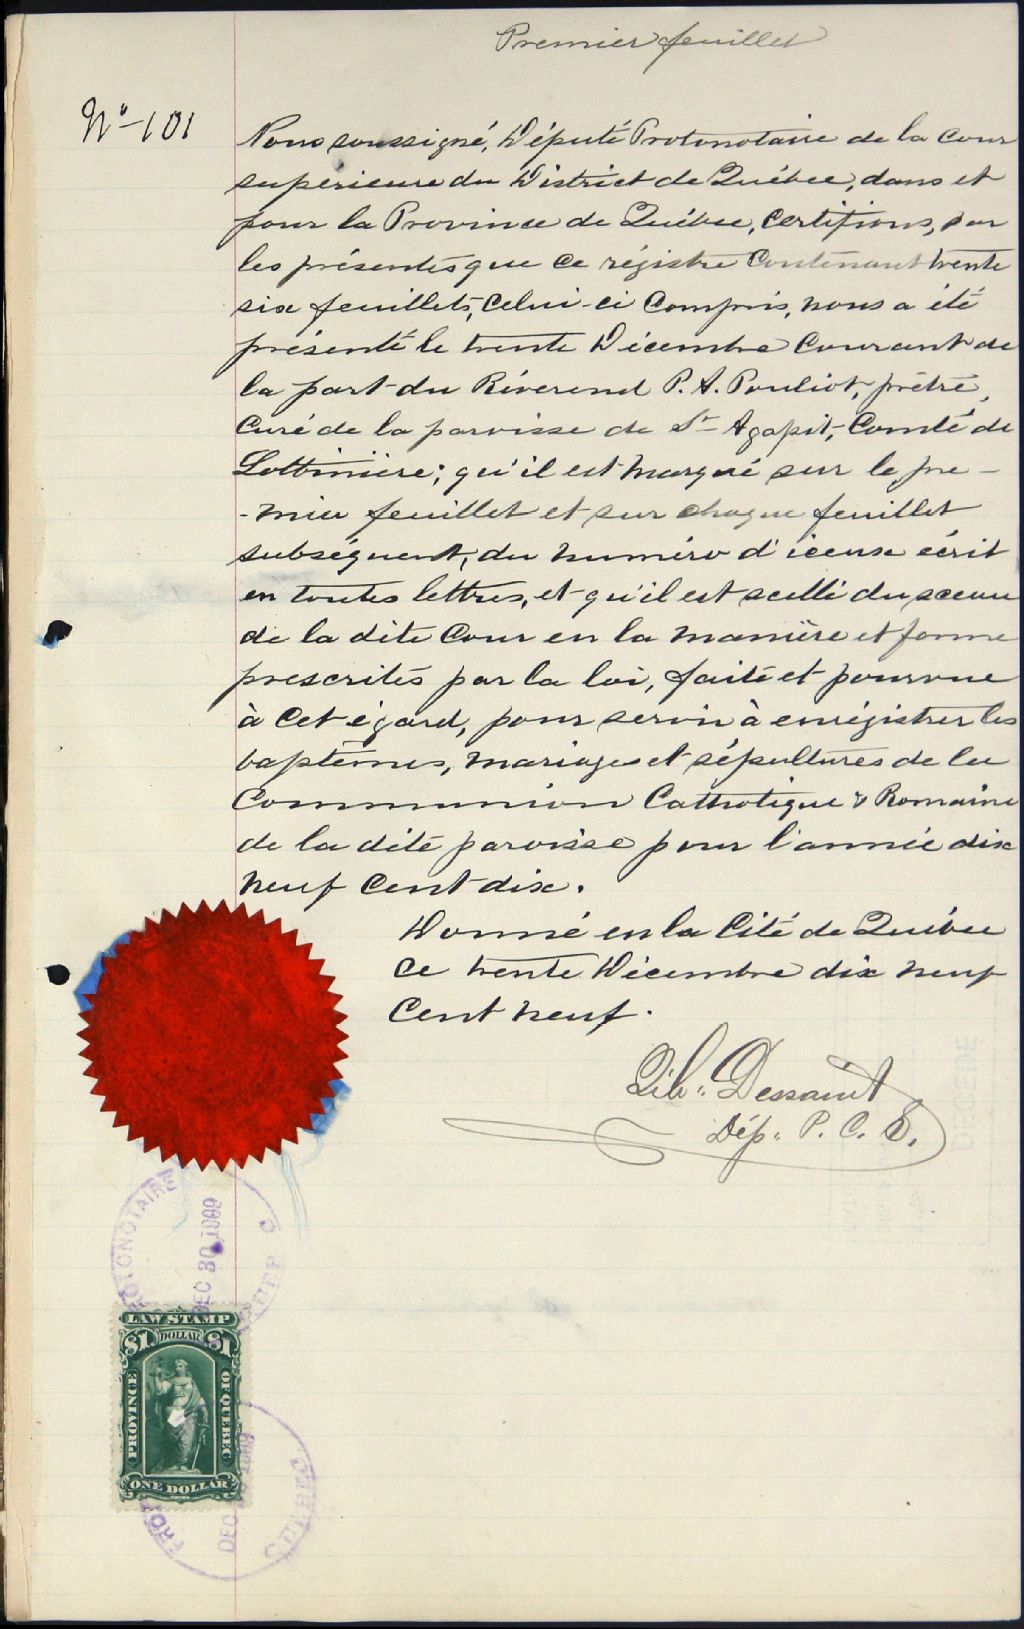 Premier feuillet
No-101
Nous soussigné, Député Protonotaire de la Cour
supérieure du District de Québec, dans et
pour la Province de Québec, Certifions, par
les présentes que ce régistre Contenant trente
six feuillets, Celui-ci Compris, nous a été
présenté le trente Décembre Courant de
la part du Réverend P. A. Pouliot, prêtre,
Curé de la paroisse de St Agapit, Comté de
Lotbinière; qu'il est marqué sur le pre-
-mier feuillet et sur chaque feuillet
subséquent, du numéro d'iceux écrit
en toutes lettres, et qu'il est scellé du sceau
de la dite Cour en la manière et forme
prescrites par la loi, faite et pourvue
à Cet égard, pour servir à enrégistrer les
baptêmes, mariages et sépultures de la
Communion Catholique & Romaine
de la dite paroisse pour l'année dix
neuf Cent dix.
Donné en la Cité de Québec
Ce trente Décembre dix neuf
Cent neuf.
Dessaint
Dép. P. C. S.
PROTONOTAIRE
DEC 30 1909
LAW STAMP
$1 DOLLAR $1
PROVINCE OF QUEBEC
ONE DOLLAR
DEC 1909
QUEBEC